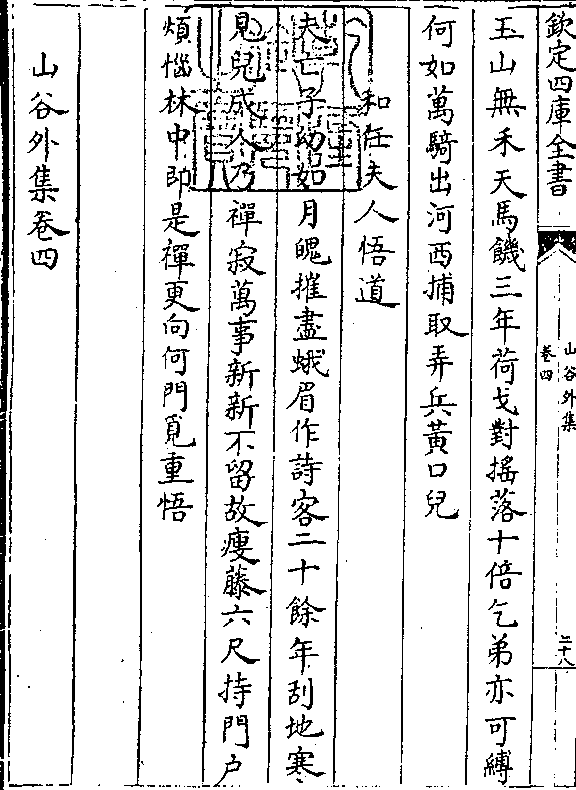 欽定四庫全書
山谷外集
卷四
二十八
玉山無禾天馬饑三年荷戈對摇落十倍乞弟亦可縛
何如萬騎出河西捕取弄兵黄口兒
和任夫人悟道
夫亡子幼如月魄摧盡蛾眉作詩客二十餘年刮地寒
見兒成人乃禪寂萬事新新不留故瘦藤六尺持門户
煩惱林中即是禪更向何門覓重悟
山谷外集卷四